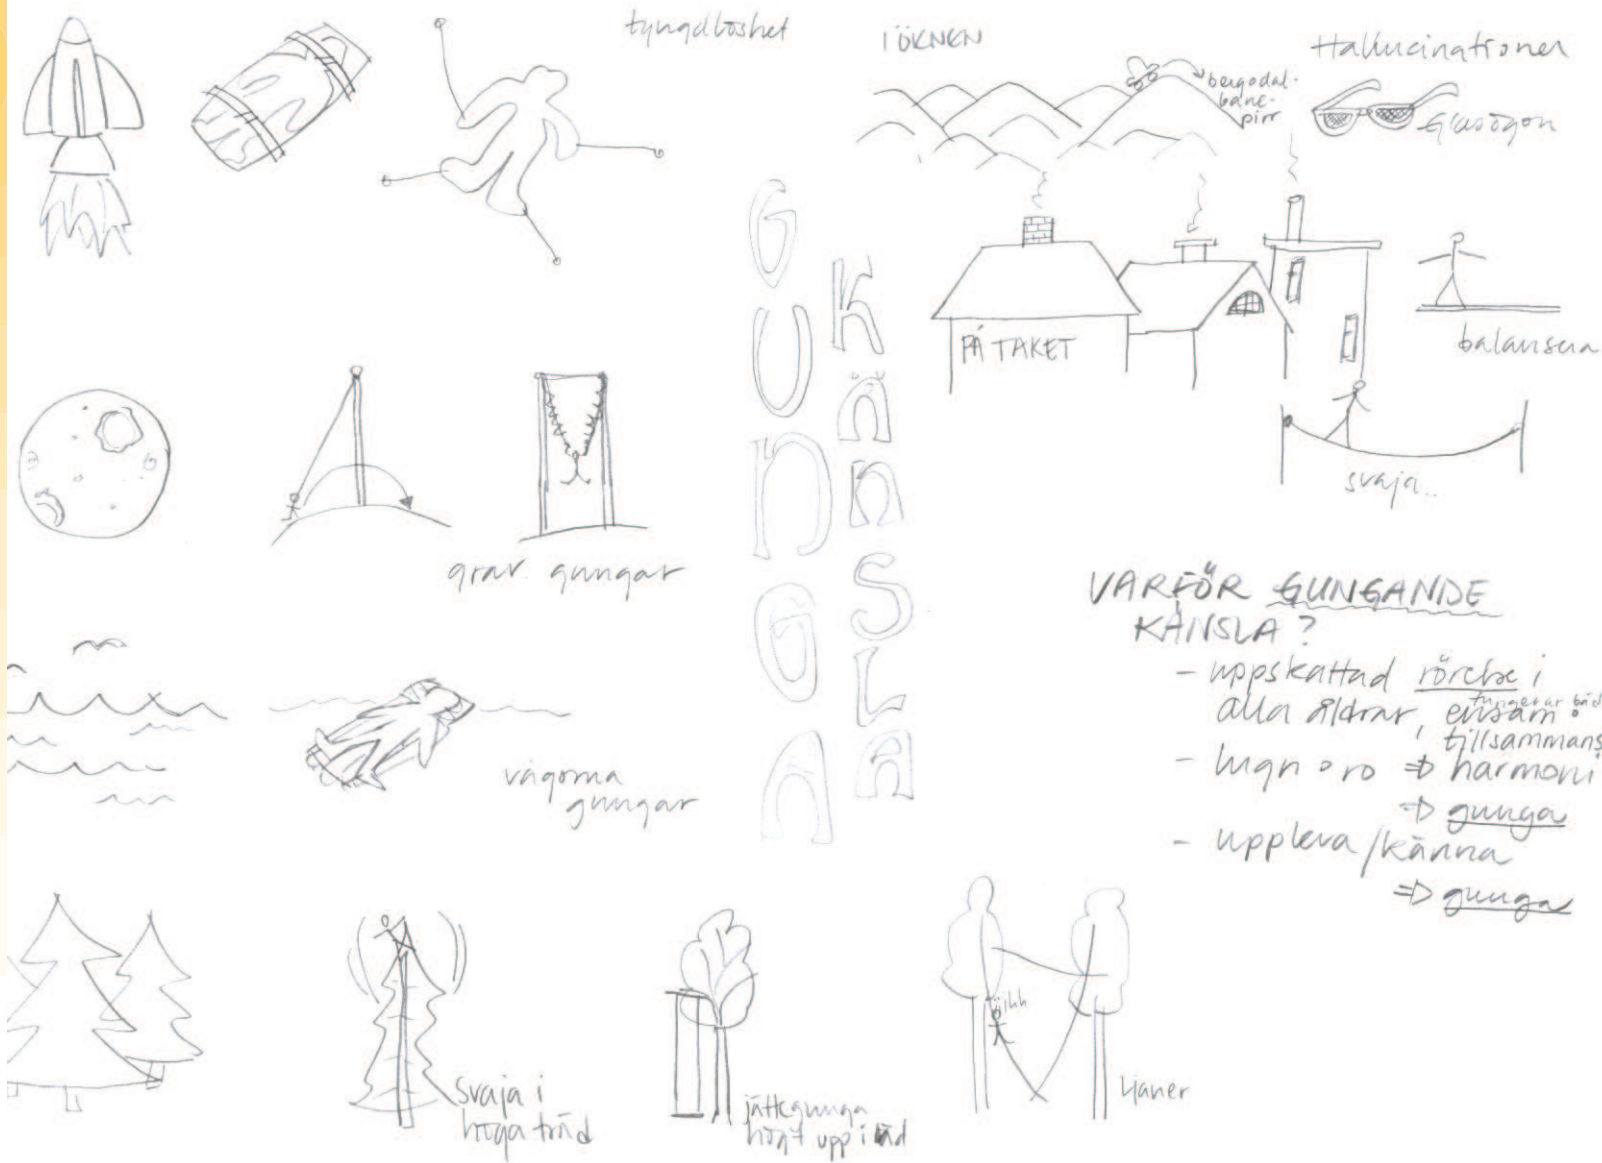 tyngdlöshet
I ÖKNEN
bergodal-
bane-
pirr
Hallucinationer
Glasögon
GUNGA
KÄNSLA
PÅ TAKET
balansera
svaja..
grav. gungar
VARFÖR GUNGANDE
KÄNSLA?
- uppskattad rörelse i
alla åldrar, ensam o
fungerar båd
tillsammans
- lugn o ro ⇒ harmoni
⇒ gunga
- uppleva/känna
⇒ gunga
vågorna
gungar
svaja i
höga träd
jättegunga
högt upp i träd
lianer